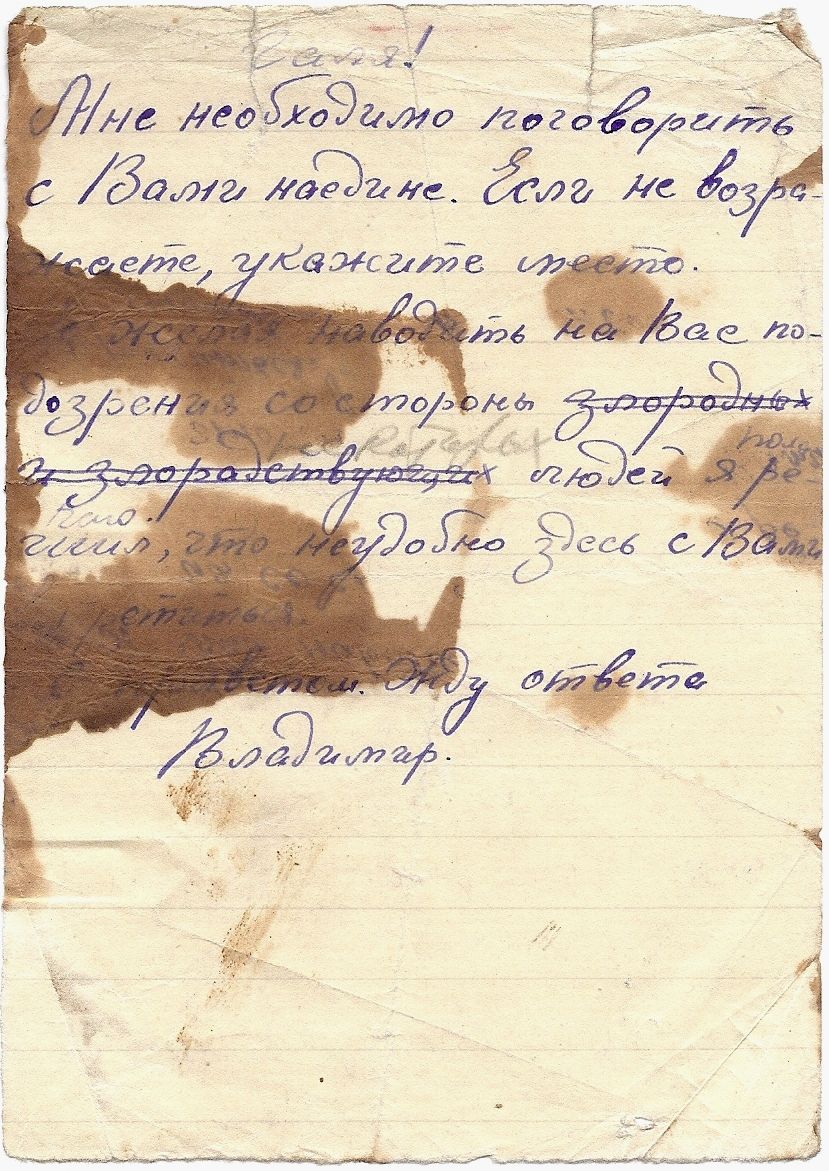 Галя!
Мне необходимо поговорить
с Вами наедине. Если не возра-
жаете, укажите место.
Не желая наводить на Вас по-
дозрения со стороны злородных
некоторых
и злорадствующих людей я ре-
шил, что неудобно здесь с Вами
С приветом. Жду ответа
Владимир.